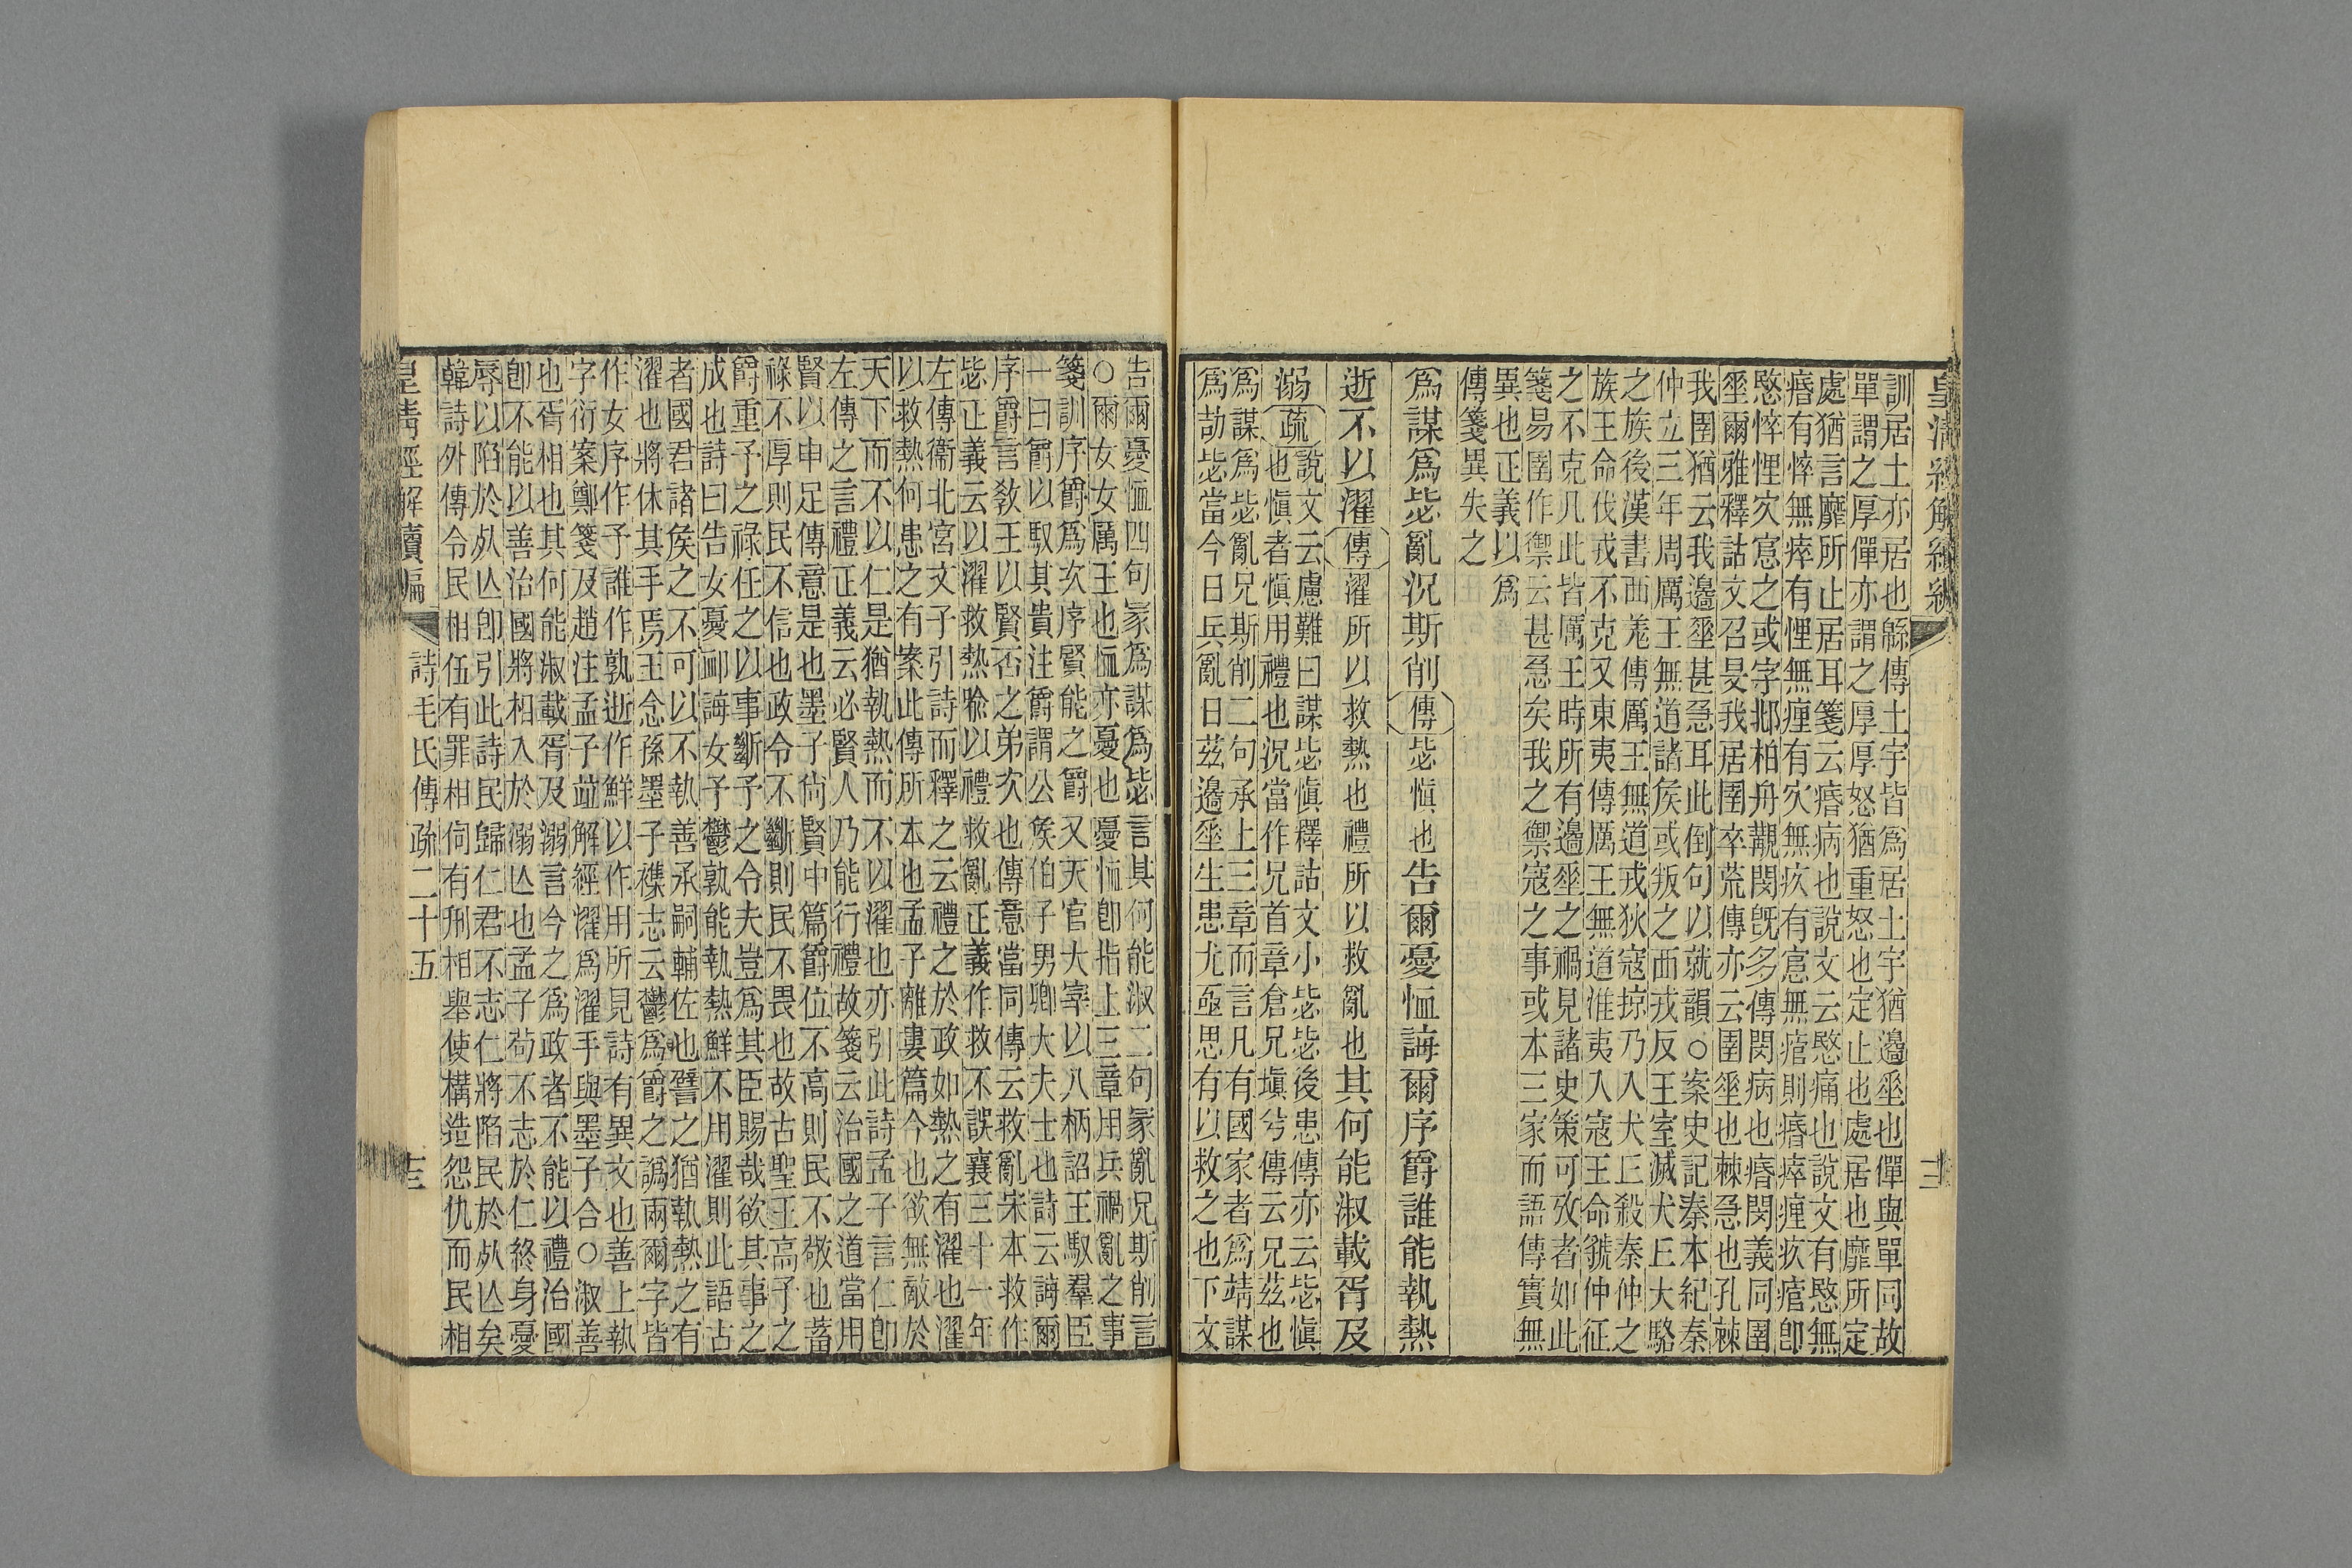 訓居土亦居也緜傳土宇皆爲居土宇猶邊垂也僤與單同故
單謂之厚僤亦謂之厚厚怒猶重怒也定止也處居也靡所定
處猶言靡所止居耳箋云痻病也說文云愍痛也說文有愍無
痻有悴無瘁有悝無㾖有㝌無疚有悹無痯則痻瘁㾖疚痯卽
愍悴悝㝌悹之或字邶柏舟覯閔旣多傳閔病也痻閔義同圉
垂爾雅釋詁文召旻我居圉卒荒傳亦云圉垂也棘急也孔棘
我圉猶云我邊垂甚急耳此倒句以就韻○案史記秦本紀秦
仲立三年周厲王無道諸侯或叛之西戎反王室滅犬丘大駱
之族後漢書西羌傳厲王無道戎狄寇掠乃入犬丘殺秦仲之
族王命伐戎不克又東夷傳厲王無道淮夷入寇王命虢仲征
之不克凡此皆厲王時所有邊垂之禍見諸史策可攷者如此
箋易圉作禦云甚急矣我之禦寇之事或本三家而語傳實無
異也正義以爲
傳箋異失之
爲謀爲毖亂況斯削傳毖愼也告爾憂恤誨爾序爵誰能執熱
逝不以濯傳濯所以救熱也禮所以救亂也其何能淑載胥及
溺疏說文云慮難曰謀毖愼釋詁文小毖毖後患傳亦云毖愼
也愼者愼用禮也況當作兄首章倉兄塡兮傳云兄茲也
爲謀爲毖亂兄斯削二句承上三章而言凡有國家者爲靖謀
爲劼毖當今日兵亂日茲邊垂生患尤亟思有以救之也下文
告爾憂恤四句家爲謀爲毖言其何能淑二句家亂兄斯削言
○爾女女厲王也恤亦憂也憂恤卽指上三章用兵禍亂之事
箋訓序爵爲次序賢能之爵又天官大宰以八柄詔王馭羣臣
一曰爵以馭其貴注爵謂公侯伯子男卿大夫士也詩云誨爾
序爵言敎王以賢否之弟次也傳意當同傳云救亂宋本救作
毖正義云以濯救熱喩以禮救亂正義作救不誤襄三十一年
左傳衞北宮文子引詩而釋之云禮之於政如熱之有濯也濯
以救熱何患之有案此傳所本也孟子離婁篇今也欲無敵於
天下而不以仁是猶執熱而不以濯也亦引此詩孟子言仁卽
左傳之言禮正義云必賢人乃能行禮故箋云治國之道當用
賢以申足傳意是也墨子尙賢中篇爵位不高則民不敬也蓄
祿不厚則民不信也政令不斷則民不畏也故古聖王高予之
爵重予之祿任之以事斷予之令夫豈爲其臣賜哉欲其事之
成也詩曰告女憂卹誨女予鬱孰能執熱鮮不用濯則此語古
者國君諸侯之不可以不執善承嗣輔佐也譬之猶執熱之有
濯也將休其手焉王念孫墨子襍志云鬱爲爵之譌兩爾字皆
作女序作予誰作孰逝作鮮以作用所見詩有異文也善上執
字衍案鄭箋及趙注孟子竝解經濯爲濯手與墨子合○淑善
也胥相也其何能淑載胥及溺言今之爲政者不能以禮治國
卽不能以善治國將相入於溺亾也孟子苟不志於仁終身憂
辱以陷於死亾卽引此詩民歸仁君不志仁將陷民於死亾矣
韓詩外傳令民相伍有罪相伺有刑相舉使構造怨仇而民相
皇清經解續編
詩毛氏傳疏二十五
十三